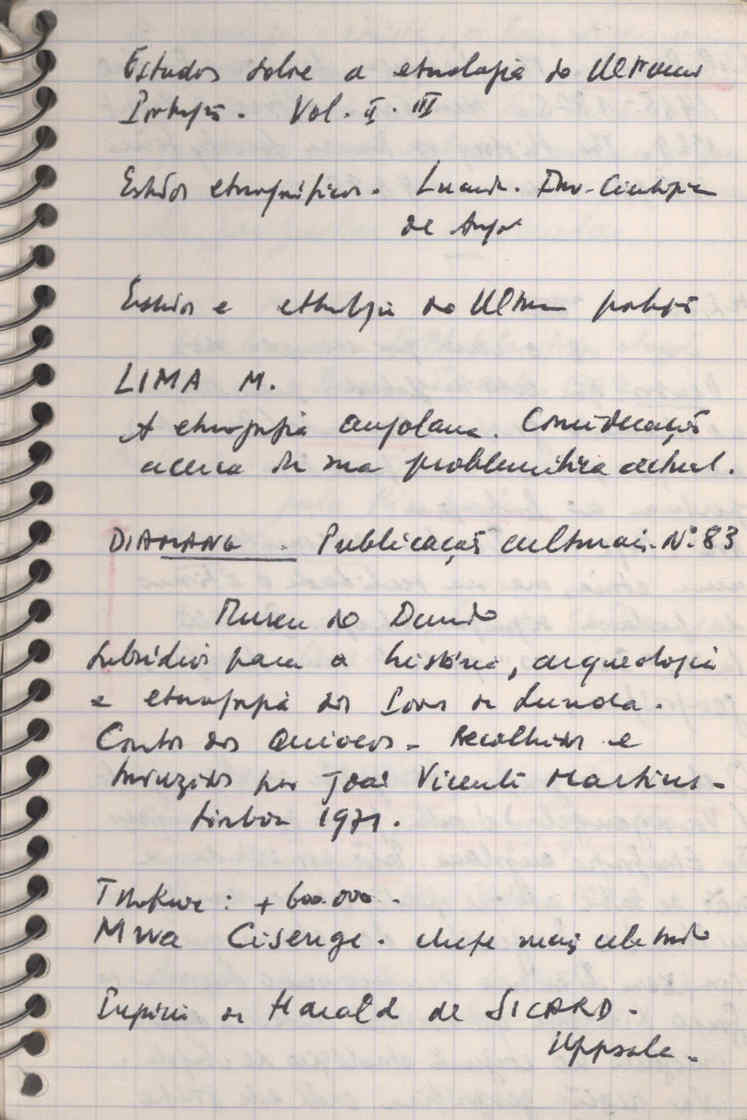 Estudos sobre a etnologia do Ultramar
Português. Vol. II. III
Estudos etnográficos. Luanda. Inst. Cientifica
de Angola
Estudos e etnologia do Ultramar português
LIMA M.
A etnografia angolana. Considerações
acerca da sua problemática actual.
DIAMANG. Publicações culturais. Nº 83
Museu do Dundo
Subsídios para a história, arqueologia
e etnografia dos Povos da Lunda.
Contos dos Quiocos - Recolhidos e
traduzidos por João Vicente Martins -
Lisboa 1971.
Tshokwe : + 600.000.
Mwa Cisenge. chefe mais
de Harald de SICARD.
Uppsala.